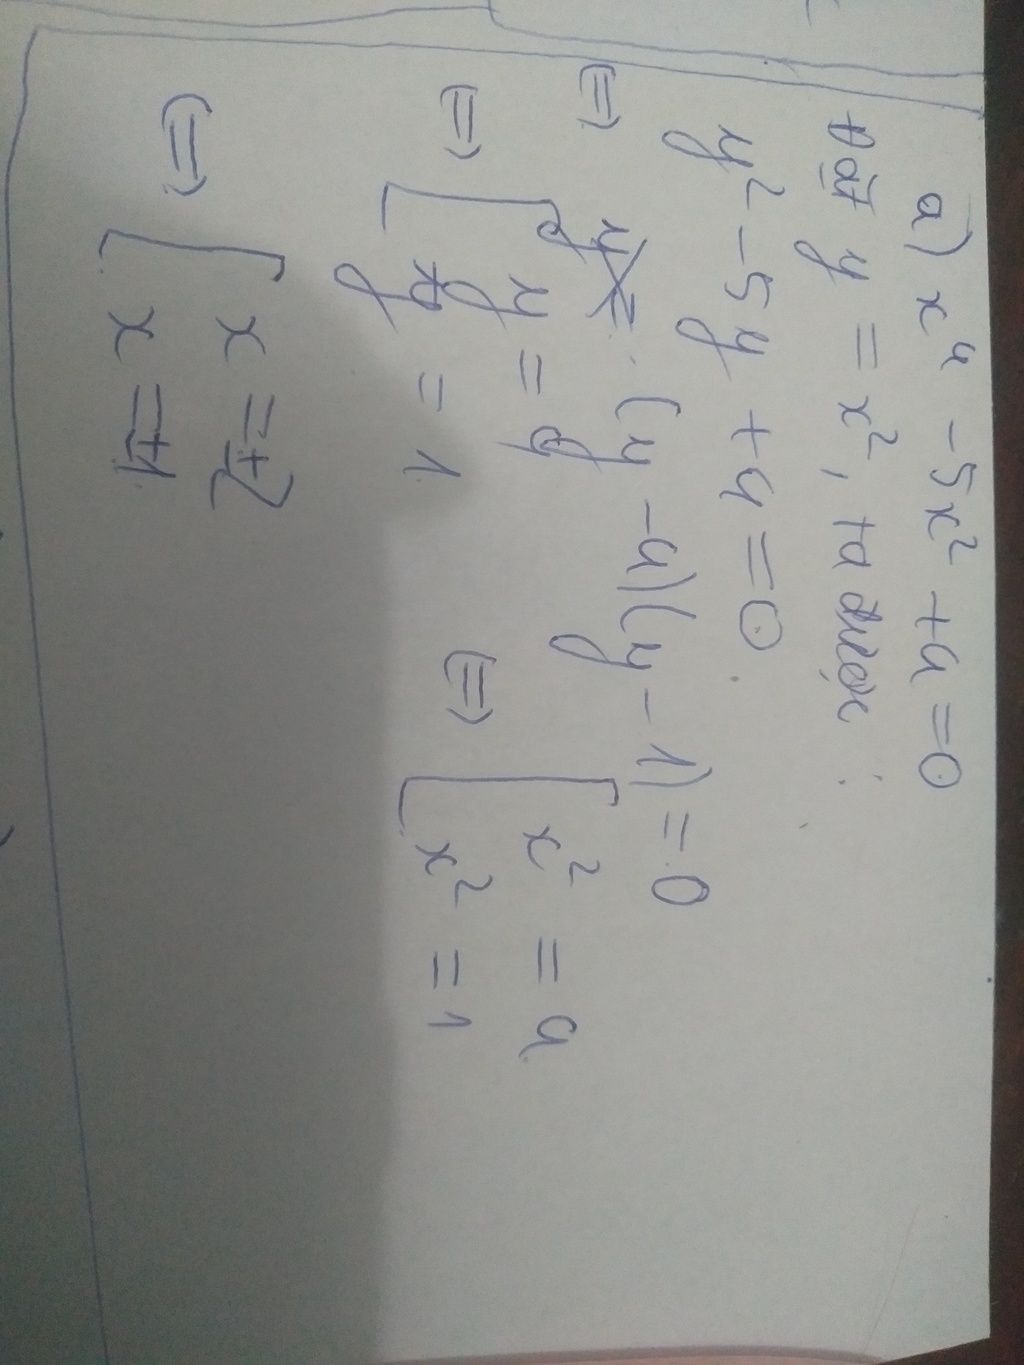 a) x⁴ - 5x² + 4 = 0
Đặt y = x², ta được :
y² - 5y + 4 = 0
⇔ (y - 4)(y - 1) = 0
⇔ [ y = 4 ⇔ [ x² = 4
y = 1 x² = 1
⇔ [ x = ±2
x = ±1